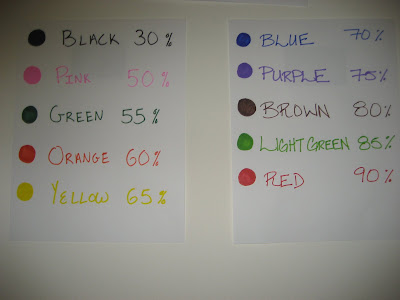 BLACK 30%
PINK 50%
GREEN 55%
ORANGE 60%
YELLOW 65%
BLUE 70%
PURPLE 75%
BROWN 80%
LIGHT GREEN 85%
RED 90%